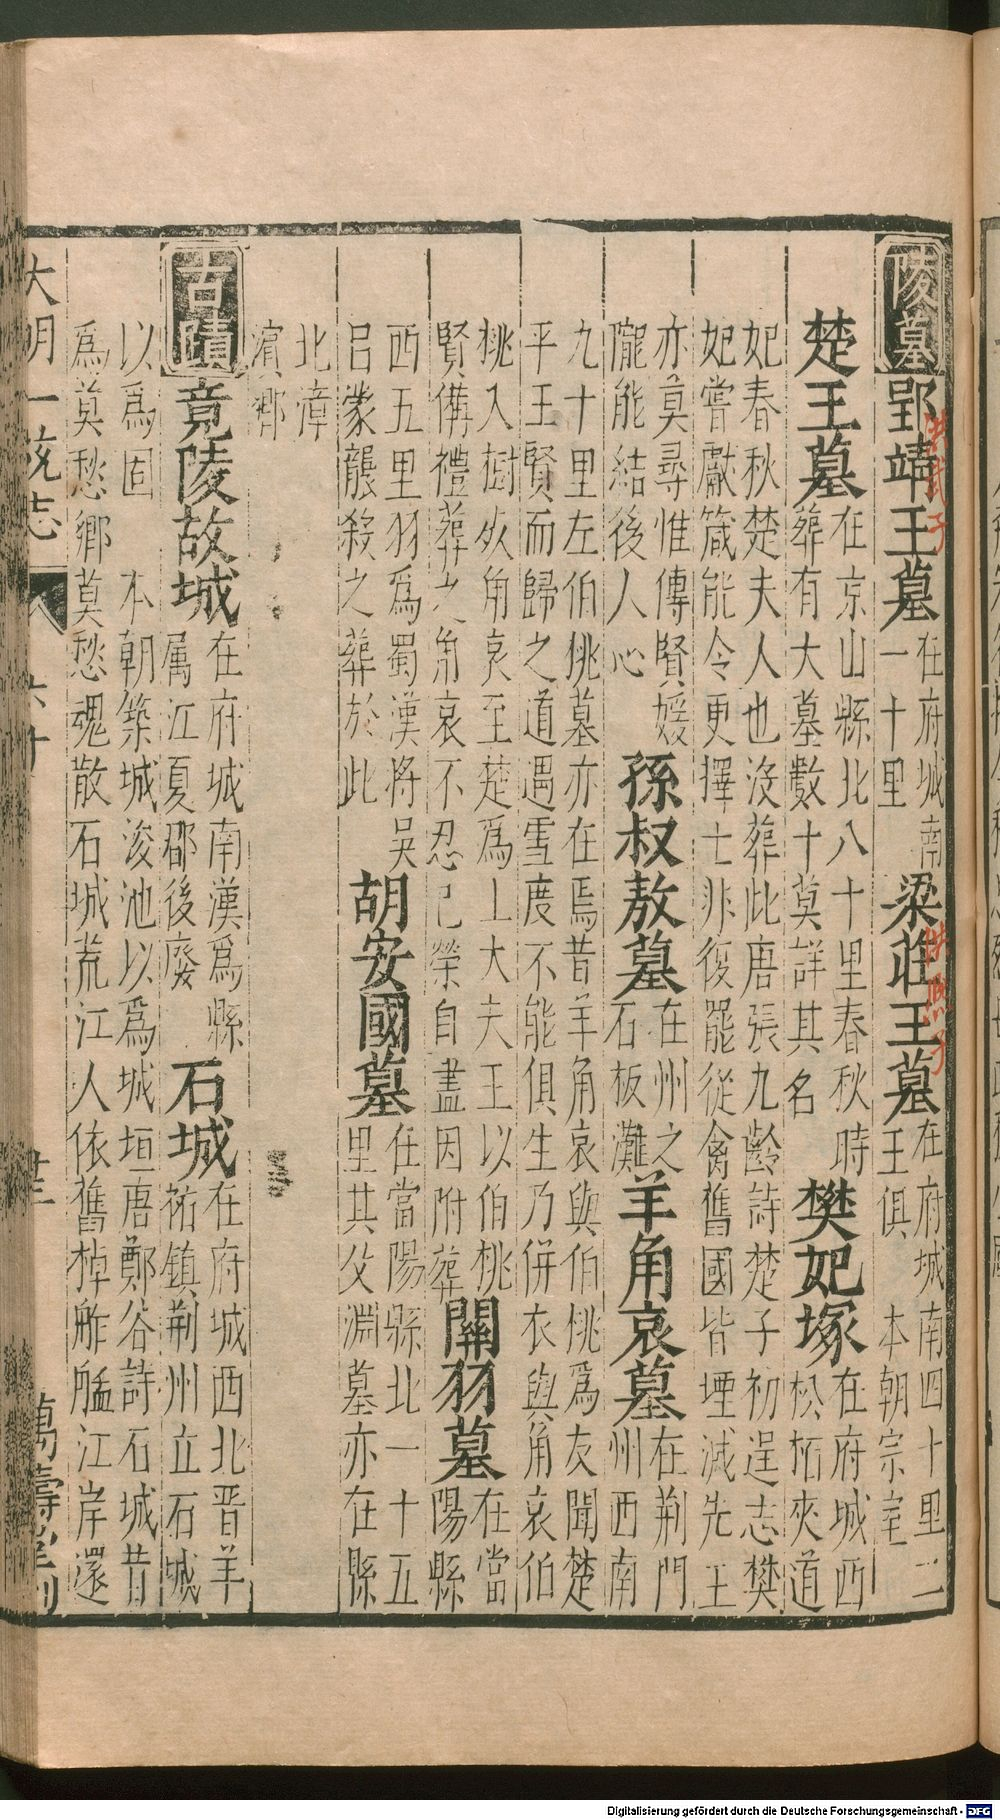 陵墓 郢靖王墓 在府城南
一十里 梁莊王墓 在府城南四十里二
王俱 本朝宗室
楚王墓 在京山縣北八十里春秋時
葬有大墓數十莫詳其名 樊妃塚 在府城西
松柘夾道
妃春秋楚夫人也沒葬此唐張九齡詩楚子初逞志樊
妃嘗獻箴能令更擇士非復罷從禽舊國皆堙滅先王
亦莫尋惟傳賢媛
隴能結後人心 孫叔敖墓 在州之
石板灘 羊角哀墓 在荊門
州西南
九十里左伯桃墓亦在焉昔羊角哀與伯桃為友聞楚
平王賢而歸之道遇雪度不能俱生乃併衣與角哀伯
桃入樹死角哀至楚為上大夫王以伯桃
賢備禮葬之角哀不忍己榮自盡因附葬 關羽墓 在當
陽縣
西五里羽為蜀漢將吳
呂蒙襲殺之葬於此 胡安國墓 在當陽縣北一十五
里其父淵墓亦在縣
北漳
濱鄉
古蹟 竟陵故城 在府城南漢為縣
属江夏郡後廢 石城 在府城西北晉羊
祜鎮荊州立石城
以為固 本朝築城浚池以為城垣唐鄭谷詩石城昔
為莫愁鄉莫愁魂散石城荒江人依舊棹舴艋江岸還
大明一統志 六十 廿二 萬壽堂刊
洪武子
洪熙子
Digitalisierung gefördert durch die Deutsche Forschungsgemeinschaft - DFG